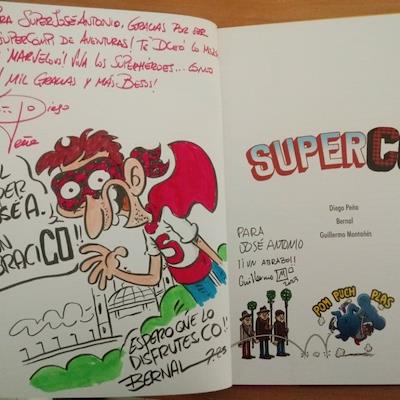 PARA SUPER JOSÉ ANTONIO, GRACIAS POR SER
SUPERCOMPI DE AVENTURAS! TE LO MÁS
MARVELOUS! VIVA LOS SUPERHÉROES...
MIL GRACIAS Y MÁS BESOS!
Diego
Peña
JOSÉ A.
UN
BRACICO!!
S
ESPERO QUE LO
DISFRUTES CO!!
BERNAL
SUPERC
Diego Peña
Bernal
Guillermo Montañés
PARA
JOSÉ ANTONIO
¡¡UN ABRAZO!!
Guillermo
POM PUCH PLAS